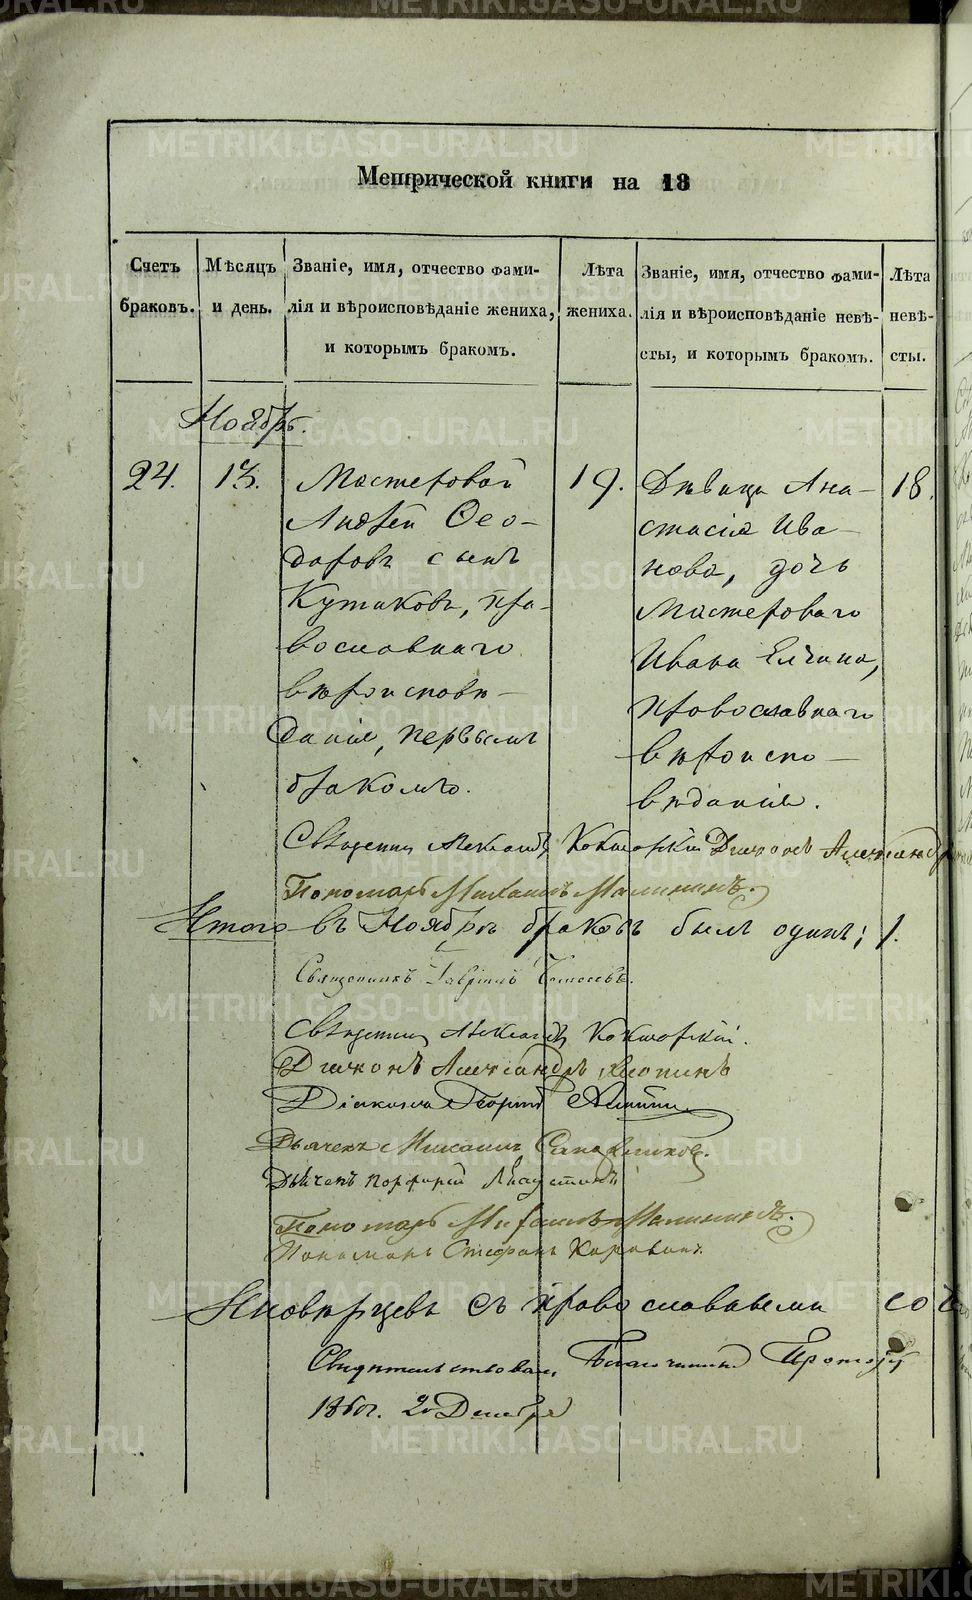 Метрической книги на 18
Счетъ браковъ.
Мѣсяцъ и день.
Званіе, имя, отчество фами-
лія и вѣроисповѣданіе жениха,
и которымъ бракомъ.
Лѣта жениха.
Званіе, имя, отчество фами-
лія и вѣроисповѣданіе невѣ-
сты, и которымъ бракомъ.
Лѣта невѣ-
сты.
Ноябрь.
24.
13.
Мастеровой
Андрей Ѳео-
доровъ сынъ
Кутаковъ, пра-
вославнаго
вѣроисповѣ-
данія, первымъ
бракомъ.
19.
Дѣвица Ана-
стасія Ива-
нова, дочь
мастероваго
Ивана Елчина,
православнаго
вѣроиспо-
вѣданія.
18.
Священник Александр Кокшарскій Діаконъ Александръ
Пономарь Михаилъ Малининъ.
Итого въ Ноябрѣ браковъ былъ одинъ; 1.
Священникъ Гавріилъ
Священник Александр Кокшарскій.
Діаконъ Александръ Хлопинъ
Діаконъ Георгій
Дьячекъ Михаилъ
Дьячекъ Порфирій
Пономарь Михаилъ Малининъ.
Пономарь Стефанъ
Иновѣрцевъ съ православными со
Свидѣтельствовалъ Благочинный Протоіер
1860г. 20 Декабря
METRIKI.GASO-URAL.RU